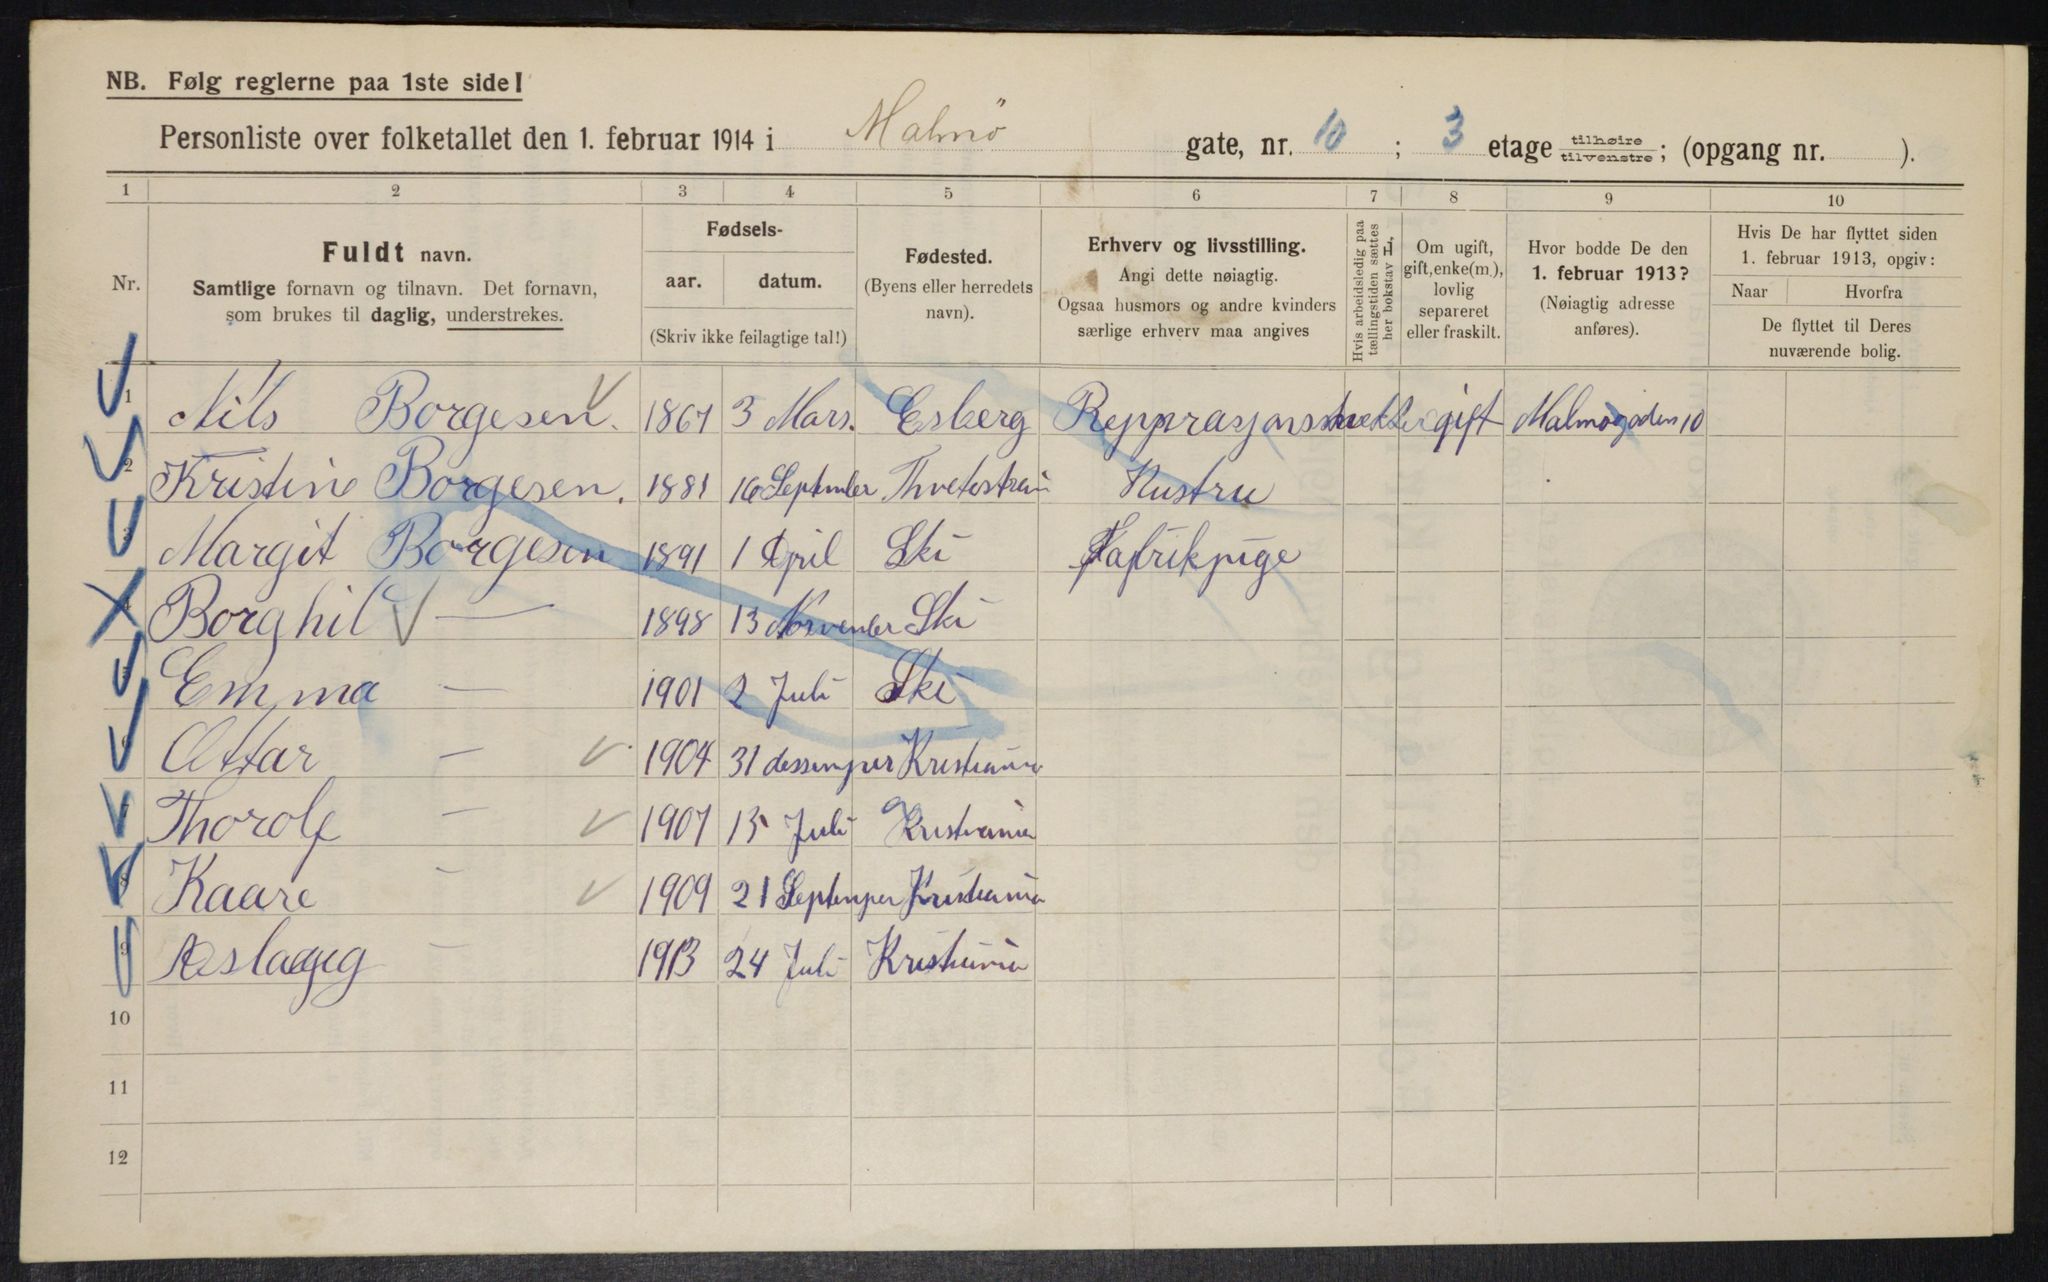 NB. Følg reglerne paa 1ste side!
Personliste over folketallet den 1. februar 1914 i Malmø gate, nr. 10 ; 3 etage tilhøire tilvenstre ; (opgang nr. ).
1 2 3 4 5 6 7 8 9 10
Nr.
Fuldt navn.
Samtlige fornavn og tilnavn. Det fornavn, som brukes til daglig, understrekes.
Fødsels-
aar. datum.
(Skriv ikke feilagtige tal!)
Fødested.
(Byens eller herredets navn).
Erhverv og livsstilling.
Angi dette nøiagtig.
Ogsaa husmors og andre kvinders særlige erhverv maa angives
Hvis arbeidsledig paa tællingstiden sættes her bokstav L.
Om ugift, gift, enke(m.), lovlig separeret eller fraskilt.
Hvor bodde De den 1. februar 1913?
(Nøiagtig adresse anføres).
Hvis De har flyttet siden 1. februar 1913, opgiv:
Naar Hvorfra
De flyttet til Deres nuværende bolig.
1 Nils Borgesen. 1867 3 Mars. Esberg gift Malmøgaden 10
2 Kristine Borgesen. 1881 16 September Hustru
3 Margit Borgesen 1891 1 April Ski Fafrikpige
4 Borghil — 1898 13 Norvenber Ski
5 Emma — 1901 2 Juli Ski
6 Ottar — 1904 31 dessemper Kristiania
7 Thorolf — 1907 15 Juli Kristiania
8 Kaare — 1909 21 Septemper Kristiania
9 Aslaug — 1913 24 Juli Kristiania
10
11
12